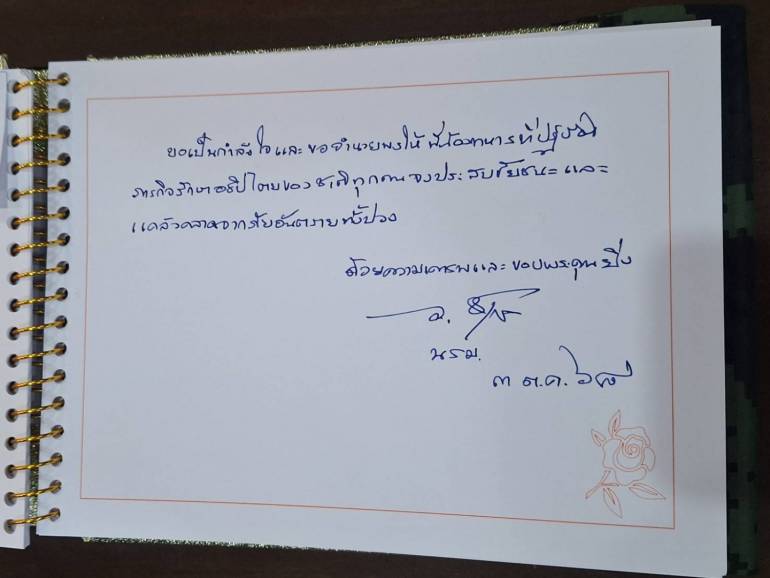 ขอเป็นกำลังใจและขออำนวยพรให้ พี่น้องทหารที่ปฏิบัติ
ภารกิจรักษาอธิปไตยของชาติทุกคนจงประสบชัยชนะและ
แคล้วคลาดจากภัยอันตรายทั้งปวง
ด้วยความเคารพและขอบพระคุณยิ่ง
นรม.
๓ ต.ค. ๖๘